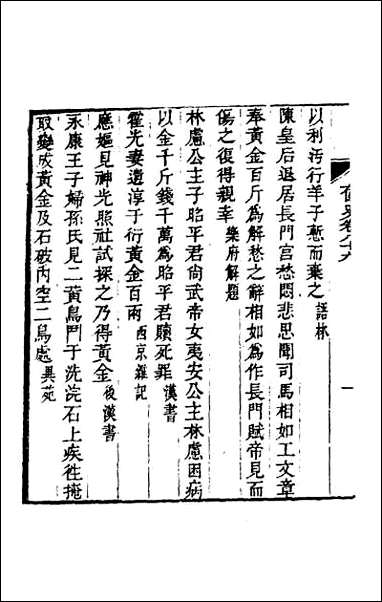 以利污行羊子慙而棄之語林
陳皇后退居長門宮愁悶悲思聞司馬相如工文章
奉黃金百斤為解愁之辭相如為作長門賦帝見而
傷之復得親幸樂府解題
林慮公主子昭平君尚武帝女夷安公主林慮困病
以金千斤錢千萬為昭平君贖死罪漢書
霍光妻遺淳于衍黃金百兩西京雜記
應嫗見神光照社試探之乃得黃金後漢書
永康王子婦孫氏見二黃鳥鬥于洗浣石上疾往掩
取變成黃金及石破內空二鳥處異苑
一